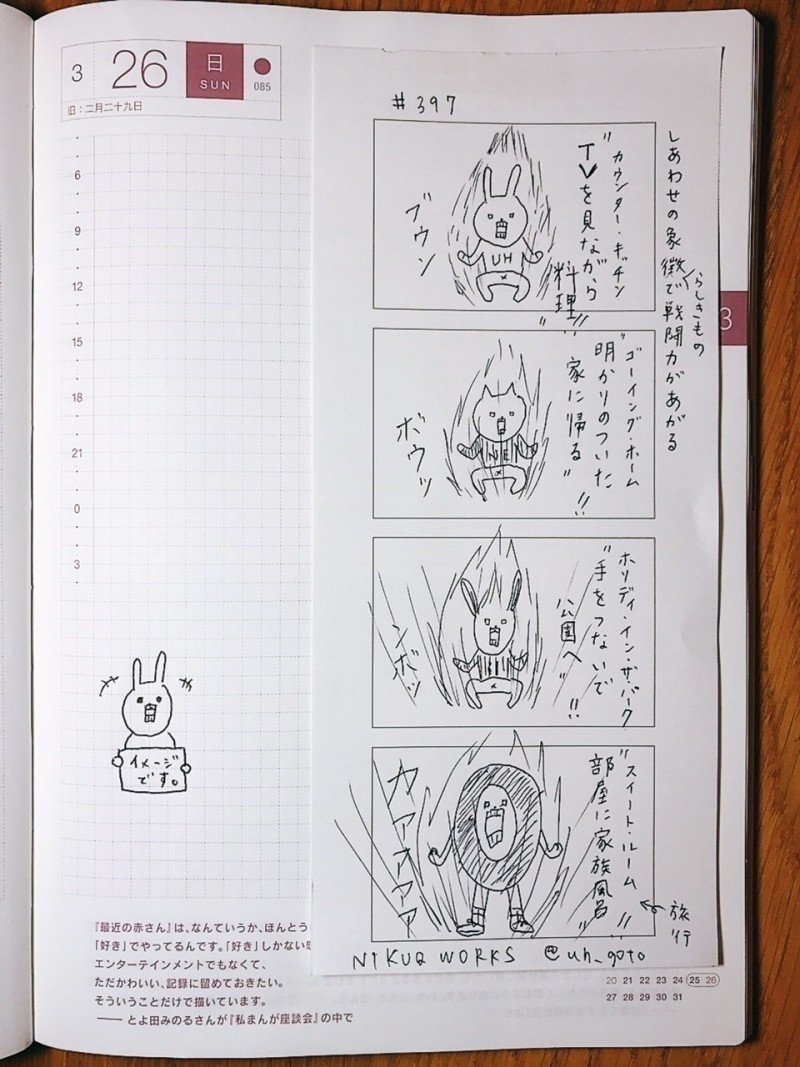 3 26 日
SUN
085
旧：二月二十九日
6
9
12
15
18
21
0
3
イメージ
です。
『最近の赤さん』は、なんていうか、ほんとう
「好き」でやってるんです。「好き」しかない
エンターテインメントでもなくて、
ただかわいい、記録に留めておきたい。
そういうことだけで描いています。
—— とよ田みのるさんが『私まんが座談会』の中で
#397
しあわせの象徴で戦闘力があがる
らしきもの
カウンター・キッチン
"TVを見ながら
料理"!!
UH
ブウン
ゴーイング・ホーム
"明かりのついた
家に帰る"!!
NE
ボウッ
ホリディ・イン・ザ・パーク
"手をつないで
公園へ"!!
ンボッ
スイート・ルーム
"部屋に家族風呂"!!
旅行
カァァァァァ
NIKUQ WORKS @uh_goto
3
20 21 22 23 24 25 26
27 28 29 30 31